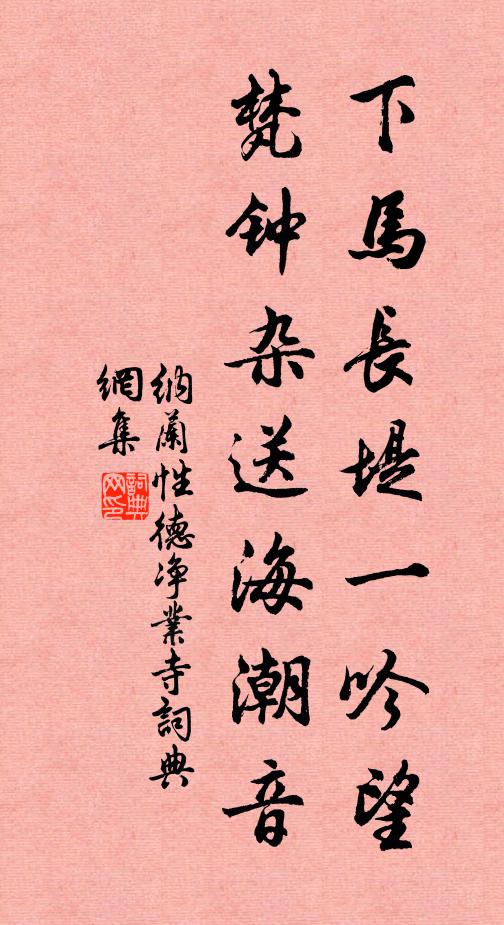 下馬長堤一吟望
梵钟杂送海潮音
納蘭性德净業寺詞典
網集
詞典
网印